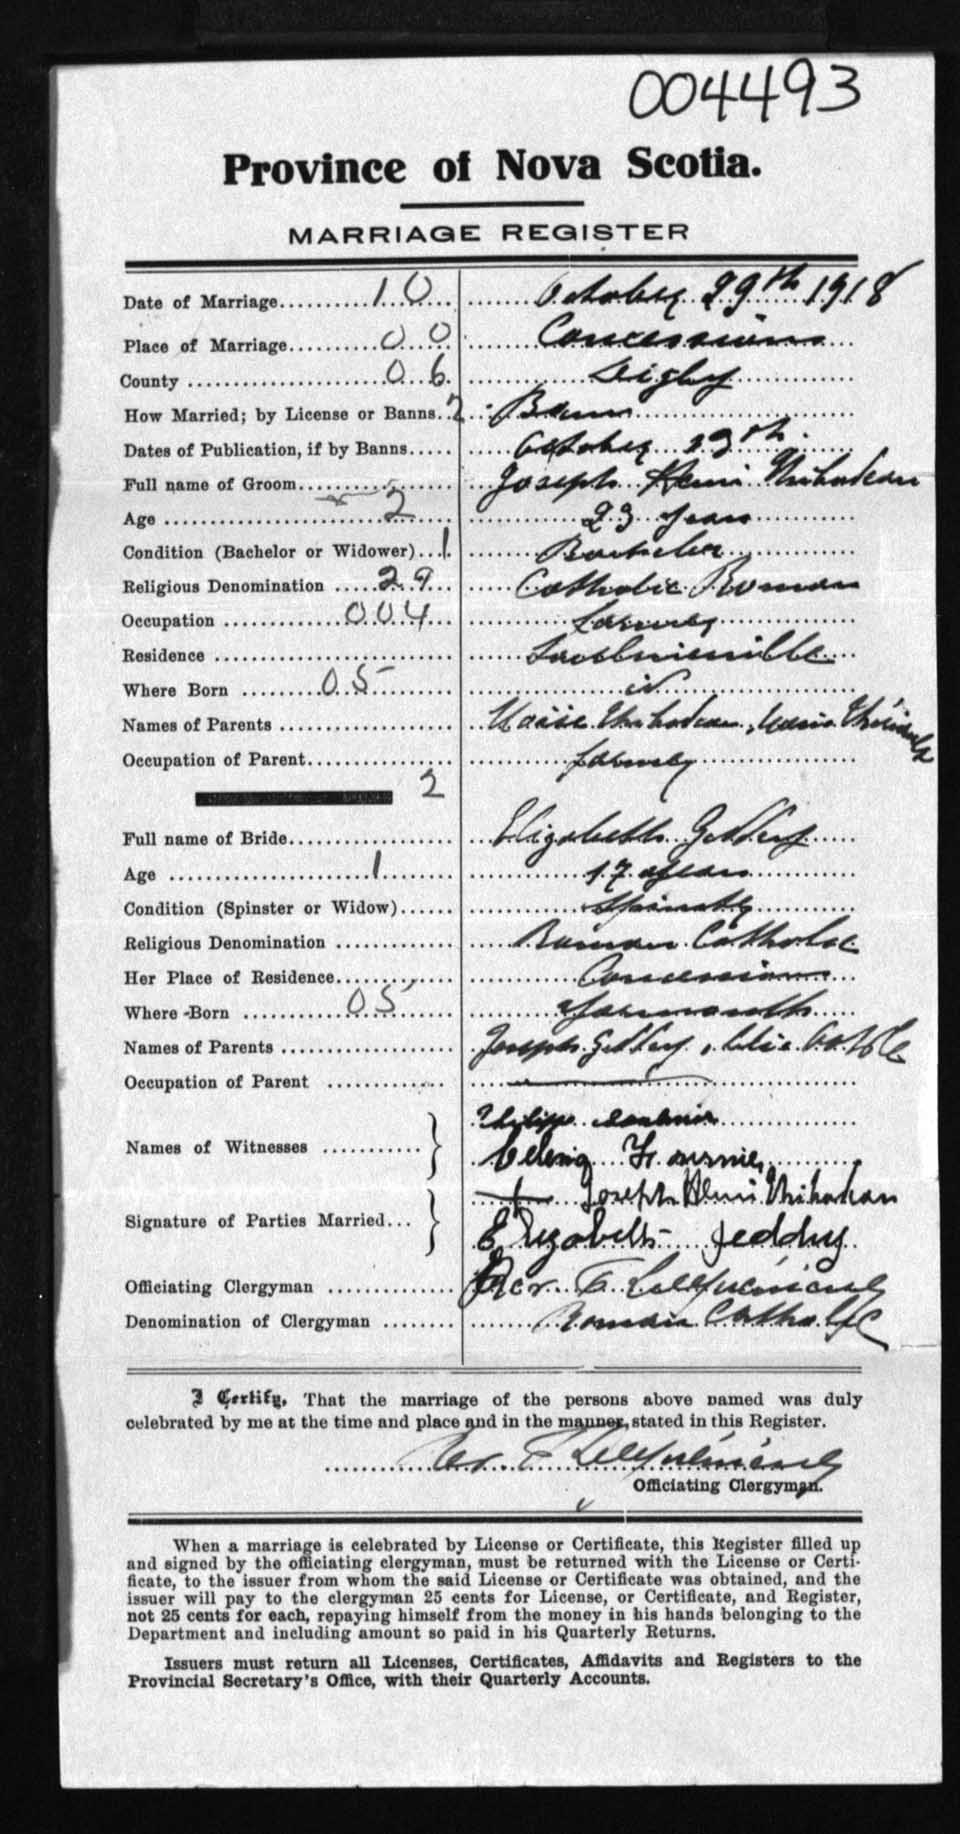 004493
Province of Nova Scotia.
MARRIAGE REGISTER
Date of Marriage 10 October 29th 1918
Place of Marriage 00 Concessions
County 06 Digby
How Married; by License or Banns 2 Bann
Dates of Publication, if by Banns October 23th
Full name of Groom Joseph Henri Thibodeau
Age 2 23 years
Condition (Bachelor or Widower) 1 Bachelor
Religious Denomination 29 Catholic Roman
Occupation 004 farmer
Residence
Where Born 05 id
Names of Parents Thibodeau
Occupation of Parent farmer
2
Full name of Bride Elizabeth Geddry
Age 1 17 years
Condition (Spinster or Widow) Spinster
Religious Denomination Roman Catholic
Her Place of Residence Concessions
Where Born 05 Yarmouth
Names of Parents Joseph Geddry
Occupation of Parent
Philipp
Names of Witnesses
+ Joseph Henri Thibodeau
Signature of Parties Married
Elizabeth Jeddry
Officiating Clergyman Rev.
Denomination of Clergyman Roman Catholic
I Certify, That the marriage of the persons above named was duly
celebrated by me at the time and place and in the manner stated in this Register.
Rev.
Officiating Clergyman.
When a marriage is celebrated by License or Certificate, this Register filled up
and signed by the officiating clergyman, must be returned with the License or Certi-
ficate, to the issuer from whom the said License or Certificate was obtained, and the
issuer will pay to the clergyman 25 cents for License, or Certificate, and Register,
not 25 cents for each, repaying himself from the money in his hands belonging to the
Department and including amount so paid in his Quarterly Returns.
Issuers must return all Licenses, Certificates, Affidavits and Registers to the
Provincial Secretary's Office, with their Quarterly Accounts.